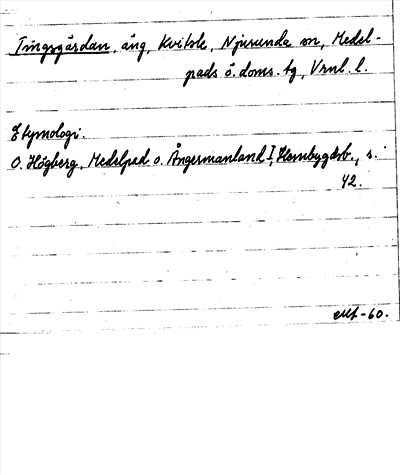 Tingsgärdan, äng, Kvitsle, Njurunda sn, Medel-
pads ö. doms. tg, Vrnl. l.
Etymologi.
O. Högberg, Medelpad o. Ångermanland I, Hembygdsb., s.
42.
-60.